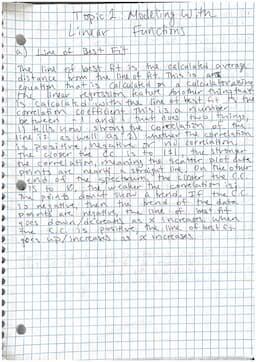 Topic 2: Modeling With
Linear Functions
a) Line of Best Fit
The line of best fit is the calculated average
distance from the line of fit. This is an
equation that is calculated on a calculator using
the linear regression feature. Another thing that
is calculated with the line of best fit is the
correlation coefficient. This is a number
between -1 and 1 that does two things,
1) tells how strong the correlation of the
line is as well as 2) whether the correlation
is positive, negative or no correlation.
The closer the CC is to |1| the stronger
the correlation, meaning the scatter plot data
points are nearly a straight line. On the other
end of the spectrum, the closer the C.C.
is to 0, the weaker the correlation is;
the points don't show a trend. If the C.C.
is negative, then the trend of the data
points are negative, the line of best fit
goes down/decreases as x increases. When
the C.C. is positive, the line of best fit
goes up/increases as x increases.